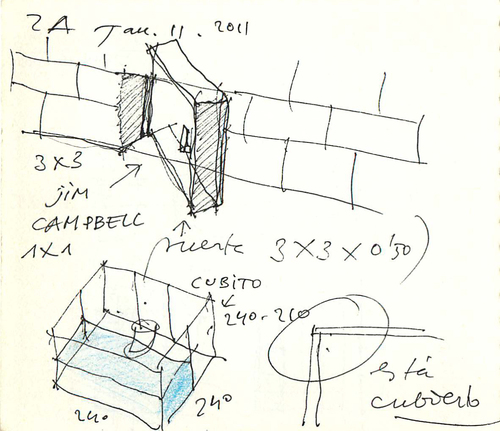 2A Jan. 11. 2011
3X3
JIM
CAMPBELL
1X1
Puerta 3X3X0'50
CUBITO
240-210
240
240
está
cubierto